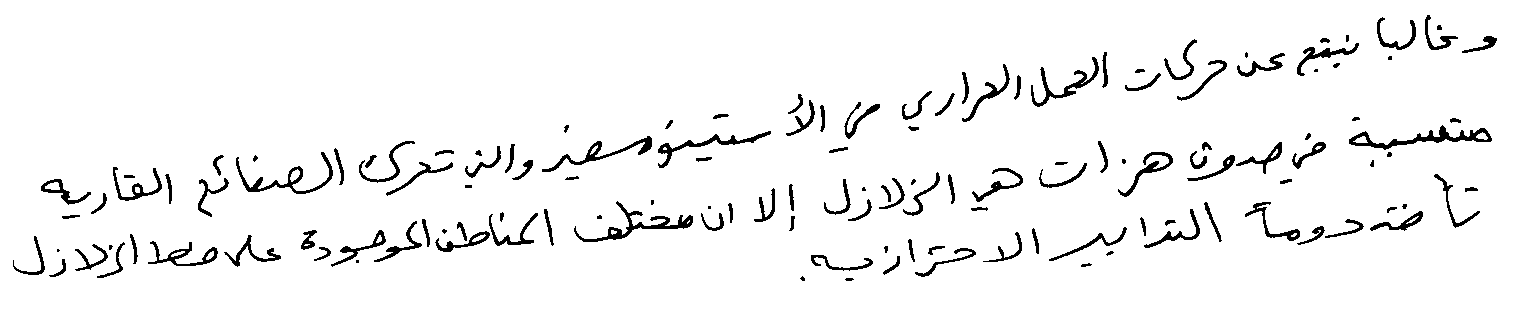 وغالبا ينتج عن حركات الحمل الحراري في الأستينوسفير والتي تحرك الصفائح القارية
متسببة في حدوث هزات هي الزلازل إلا ان مختلف المناطق الموجودة على خط الزلازل
تأخذ دوماً التدابير الاحترازيه.